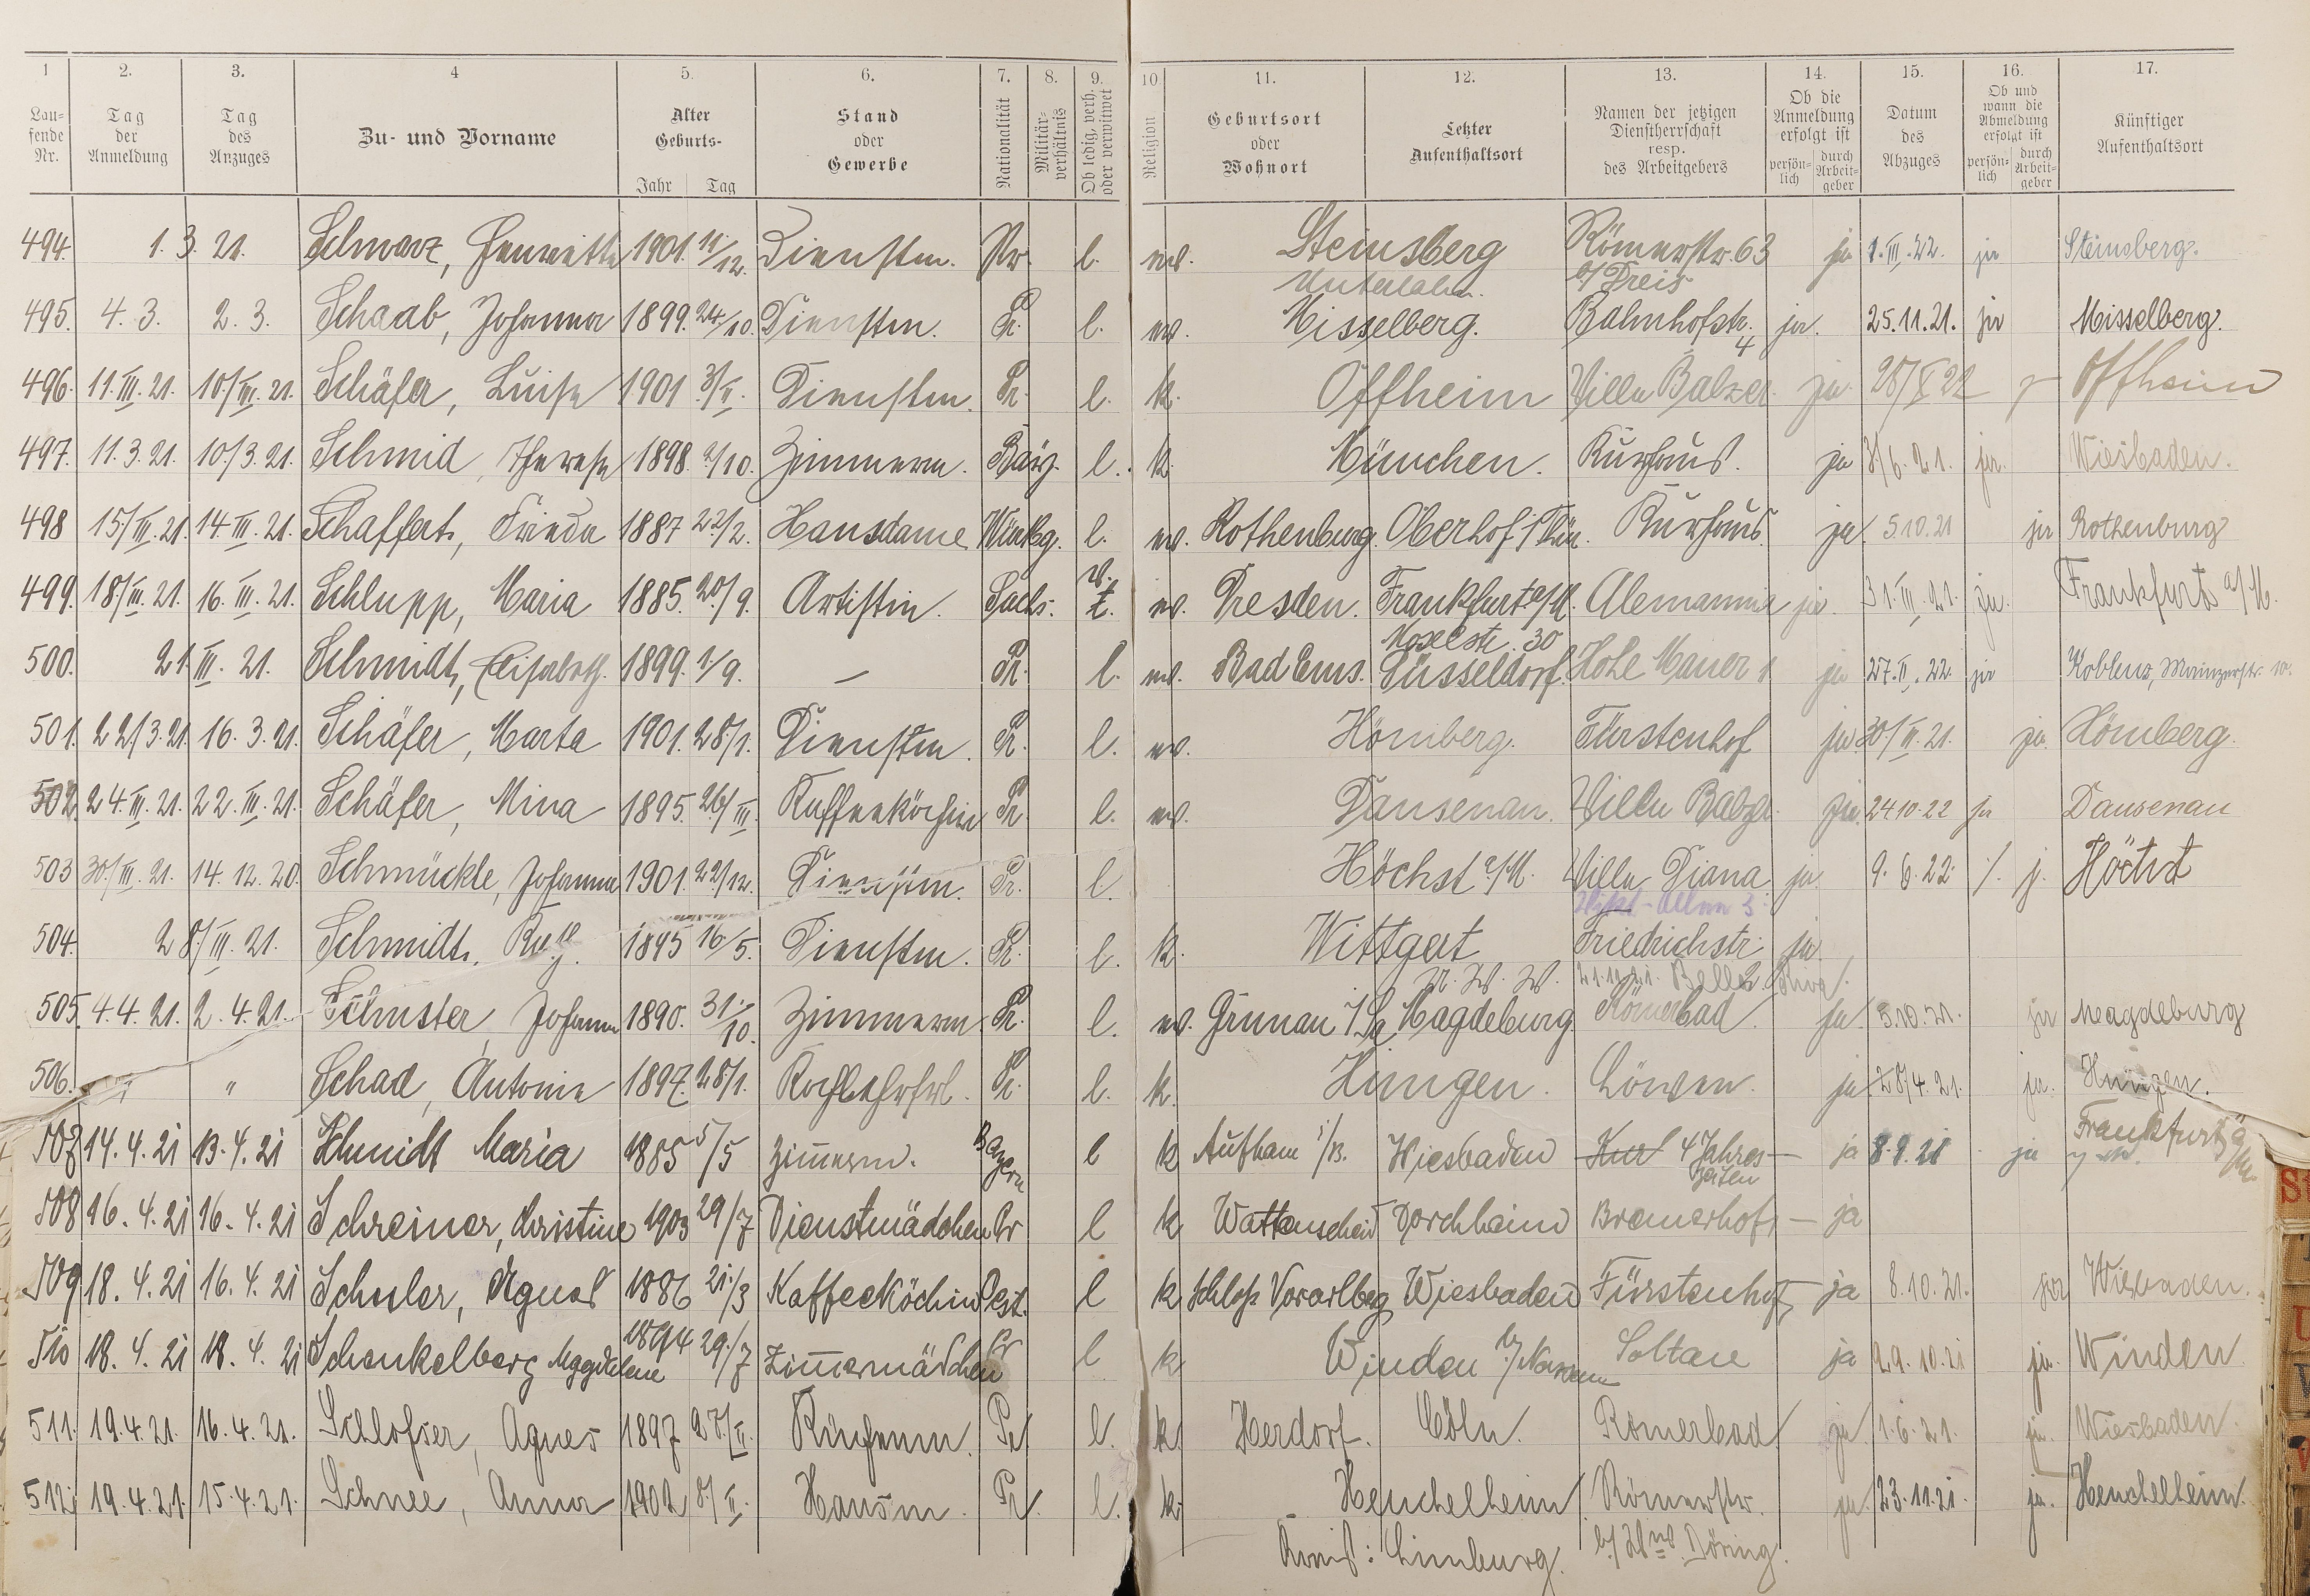 1 2. 3. 4 5. 6. 7. 8. 9. 10 11. 12. 13. 14. 15. 16. 17.
Laufende Nr. Tag der Anmeldung Tag des Anzuges Zu- und Vorname Alter Geburts- Jahr Tag Stand oder Gewerbe Nationalität Militärverhältnis Ob ledig, verh. oder verwitwet Religion Geburtsort oder Wohnort Letzter Aufenthaltsort Namen der jetzigen Dienstherrschaft resp. des Arbeitgebers Ob die Anmeldung erfolgt ist persönlich durch Arbeitgeber Datum des Abzuges Ob und wann die Abmeldung erfolgt ist persönlich durch Arbeitgeber Künftiger Aufenthaltsort
494. 1. 3. 21. Schwarz, Henriette 1901. 12. Dienstm. Pr. l. ev. Steinsberg Unterlahn. Römerstr. 63 b/ Preis ja 1. III. 22. ja Steinsberg.
495. 4. 3. 2. 3. Schaab, Johanna 1899. 24/10. Dienstm. Pr. l. ev. Misselberg. Bahnhofstr. 4 ja. 25.11.21. ja Misselberg.
496. 11. III. 21. 10/III. 21. Schäfer, Luise 1901 3/II. Dienstm. Pr. l. k. Offheim Villa Balzer. ja 28/X 22 Offheim
497. 11. 3. 21. 10/3. 21. Schmid, Therese 1898. 2/10. Zimmerm. Bay. l. k. München. Kurhaus. ja 3/6. 21. ja. Wiesbaden.
498 15/III. 21. 14. III. 21. Schaffert, Frieda 1887 22/2. Hausdame Württbg. l. ev. Rothenburg. Oberhof i/Thür. Kurhaus. ja. 5.10.21 ja Rothenburg
499. 18/III. 21. 16. III. 21. Schlupp, Maria 1885. 20/9. Artistin. Sachs. ev. Dresden. Frankfurt a/M. Moselstr. 30 Alemannia ja. 31. III. 21. ja. Frankfurt a/M.
500. 21. III. 21. Schmidt, Elisabeth. 1899. 1/9. — Pr. l. ev. Bad Ems. Düsseldorf. Hohe Mauer 1 ja 27. II. 22. ja Koblenz, Mainzerstr. 10.
501. 22/3. 21. 16. 3. 21. Schäfer, Marta 1901. 28/1. Dienstm. Pr. l. ev. Hömberg. Fürstenhof ja. 30/II. 21. ja. Hömberg.
502 24. III. 21. 22. III. 21. Schäfer, Mina 1895. 26/III. Kaffeeköchin Pr. l. ev. Dausenau. Villa Balzer. ja. 24.10.22 ja Dausenau
503 30/III. 21. 14. 12. 20. Schmückle, Johanna 1901. 22/12. Dienstm. Pr. l. Höchst a/M. Villa Diana ja. 9. 6. 22 /. j. Höchst
504. 28/III. 21. Schmidt, 1895 16/5. Dienstm. Pr. l. k. Wittgert U. W. W. Friedrichstr. 2 ja. 21.11.21. Bella Riva.
505. 4. 4. 21. 2. 4. 21. Johanna 1890. 31/10. Zimmerm. Pr. l. ev. Grunau i/Sa Magdeburg Römerbad. ja. 5.10.21. ja Magdeburg
506. " " Schad, Antonie 1897. 28/1. Kochlehrfrl. Pr. l. k. Hungen. Löwen. ja 28/4. 21. ja. Hungen.
507 14. 4. 21 13. 4. 21 Schmidt Maria 1885 5/5 Zimmerm. Bayern l k Aufham i/B. Wiesbaden Kur 4 Jahreszeiten — ja 8. 9. 21 ja Frankfurt a/M.
508 16. 4. 21 16. 4. 21 Schreiner, Christine 1903 29/7 Dienstmädchen Pr l k Wattenscheid Dorchheim Bremerhof, — ja
509 18. 4. 21 16. 4. 21 Schuler, Agnes 1886 21/3 Kaffeeköchin Oest. l k Schloss Vorarlberg Wiesbaden Fürstenhof, ja 8.10.21. ja Wiesbaden.
510 18. 4. 21 18. 4. 21 Schenkelberg Magdalene 1894 29/7 Zimmermädchen Pr l k Winden b/ Nassau Soltau ja 29. 10. 21 ja. Winden
511. 19. 4. 21. 16. 4. 21. Schlosser, Agnes 1897 27/II. Küchenm. Pr. l. k. Herdorf. Cöln. Römerbad ja 1. 6. 21. ja. Wiesbaden.
512. 19. 4. 21. 15. 4. 21. Schnee, Anna 1902 8/II. Hausm. Pr. l. k. Heuchelheim Römerstr. ja. 23.11.21. ja. Heuchelheim.
Kreis: Limburg. b/ Wwe Döring.